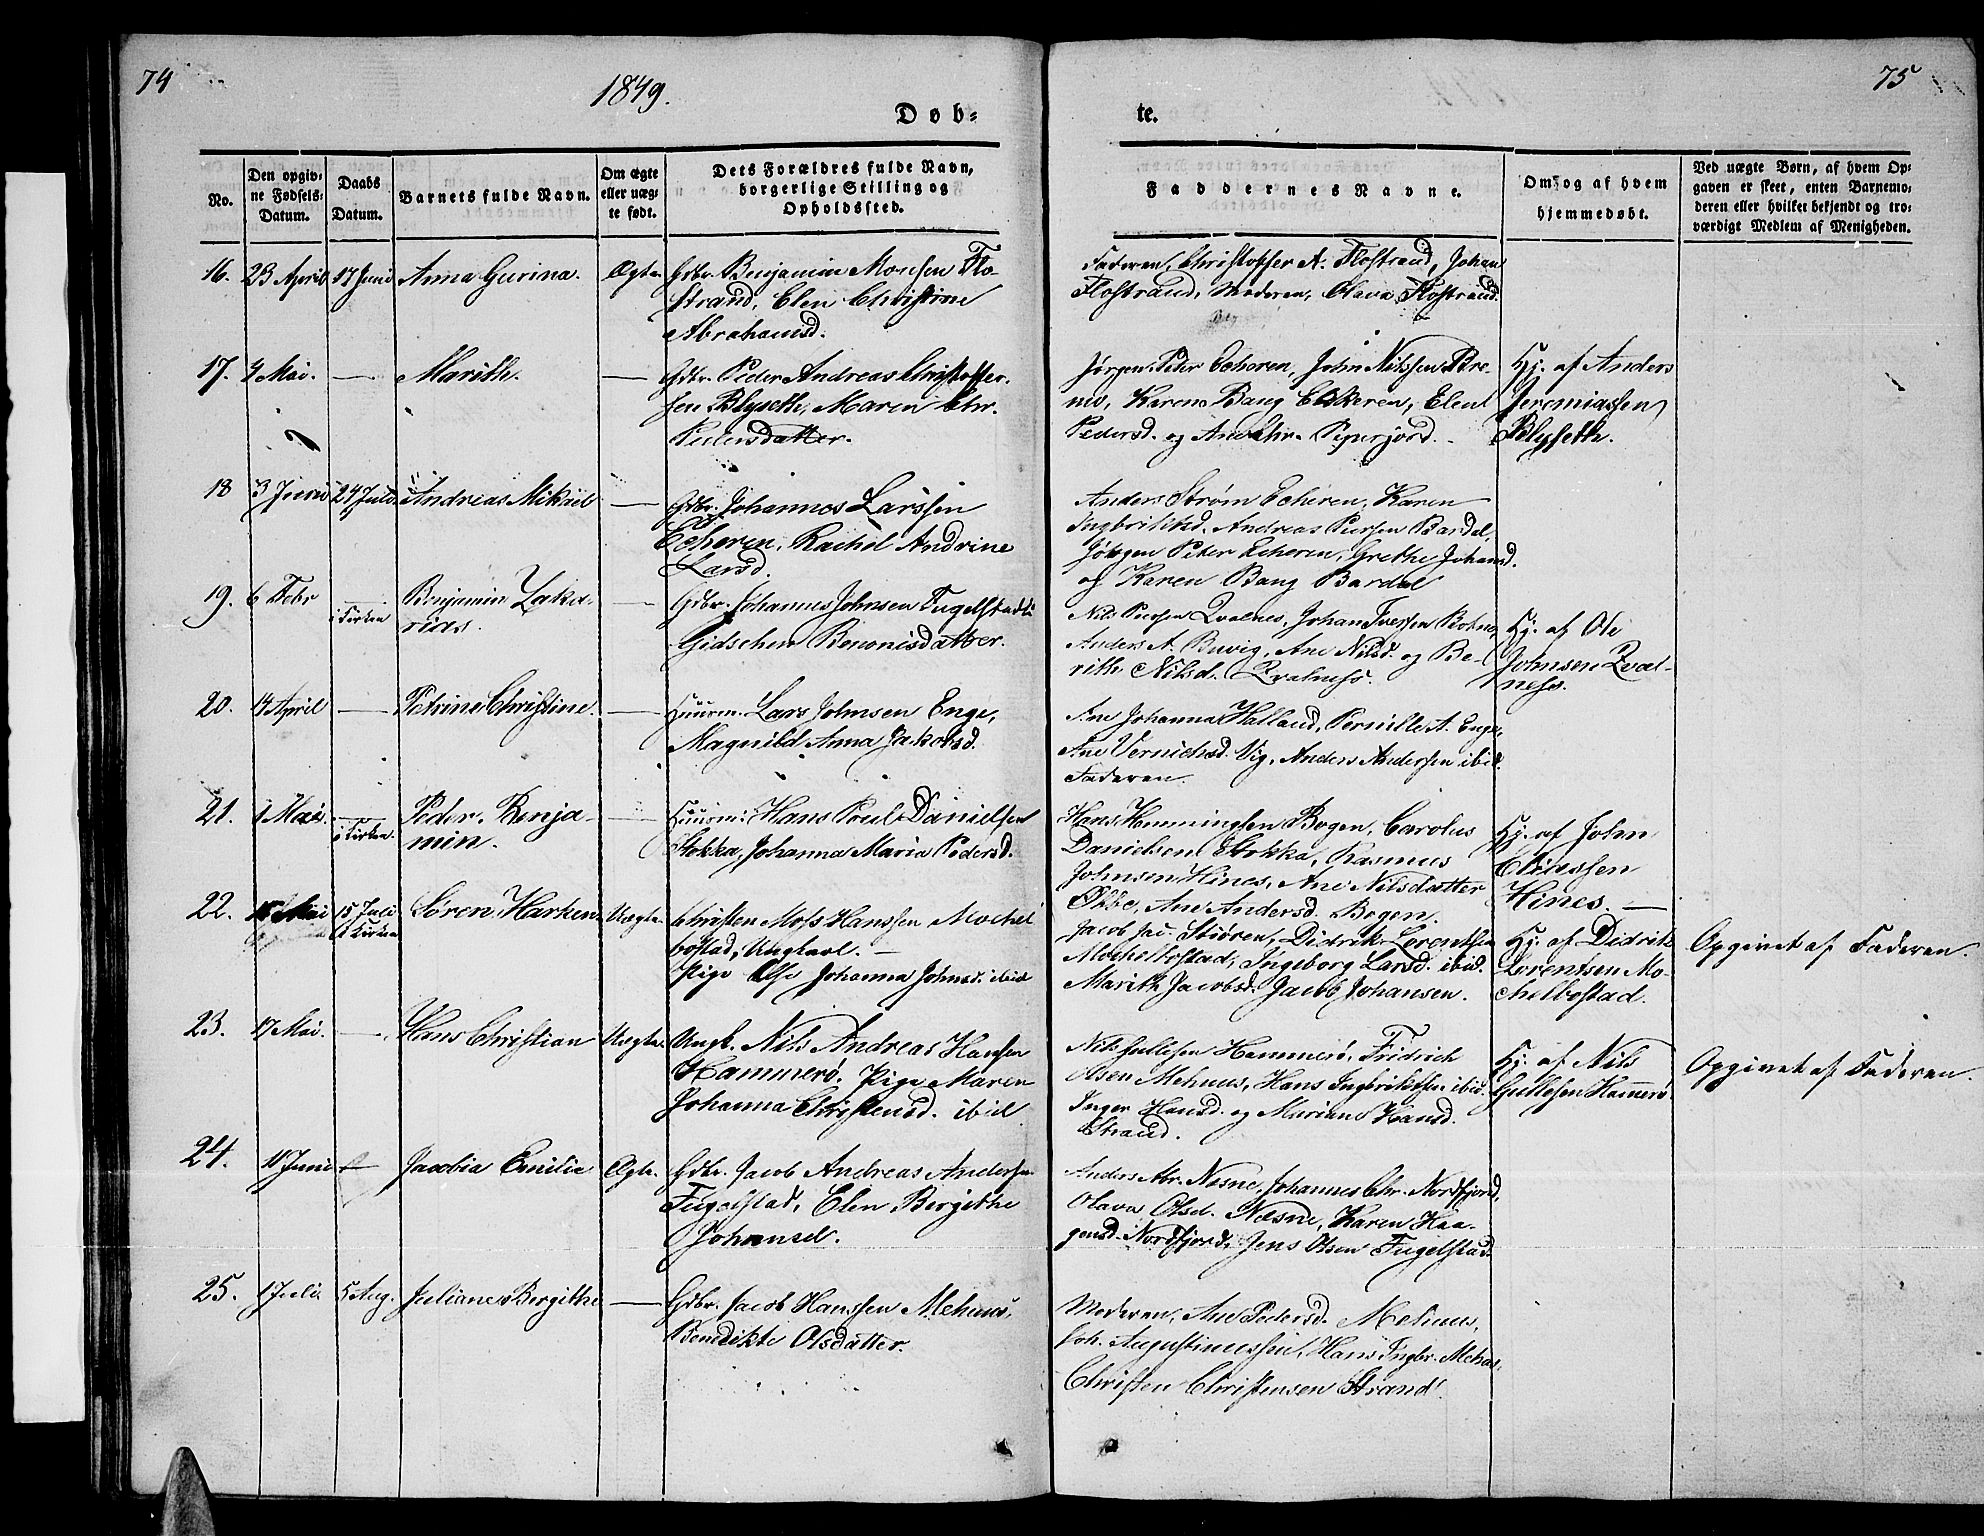 74
1849.
Døb-
te.
75
No.
Den opgiv-
ne Fødsels-
Datum.
Daabs
Datum.
Barnets fulde Navn.
Om ægte
eller uæg-
te født.
Dets Forældres fulde Navn,
borgerlige Stilling og
Opholdssted.
Faddernes Navne.
Om og af hvem
hjemmedøbt.
Ved uægte Børn, af hvem Op-
gaven er skeet, enten Barnemo-
deren eller hvilket bekjendt og tro-
værdigt Medlem af Menigheden.
16. 23 April 17 Juni Anna Gurina. Ægte. Gdbr. Benjamin Monsen Flo-
strand, Elen Christine
Abrahamsd.
Faderen, Christoffer A. Flostrand, Johan
Flostrand, Moderen, Olava Flostrand.
17. 4 Mai. — Marith. — Gdbr. Peder Andreas Christoffer-
sen Blyseth, Maren Chr.
Pedersdatter.
Jørgen Peter Echeren, John Nilssen Bre-
mo, Karen Bang Ekeren, Elen
Pedersd. og Ane Chr.
Hj. af Anders
Jeremiassen
Blyseth.
18 3 Juni 24 Juli Andreas Mikael — Gdbr. Johannes Larssen
Echeren, Rachel Andrine
Larsd.
Anders Strøm Echeren, Karen
Ingbriktsd. Andreas Persen Bardal,
Jørgen Peter Echeren, Grethe Johansd.
og Karen Bang Bardal
19. 6 Febr — i Kirken Benjamin Zaka-
rias. — Gdbr. Johannes Johnsen Fugelstadli
Gidschen Benonisdatter.
Nils Persen Qvalnes, Johan Iversen
Anders A. Buvig, Ane Nilsd. og Be-
rith Nilsd. Qvalness.
Hj. af Ole
Johnsen Qval-
ness.
20. 14 April — Petrine Christine. — Huusm. Lars Johnsen Enge,
Magnild Anna Jakobsd.
Ane Johanna Halland, Pernille A. Enge,
Ane Vernichsd. Vig, Anders Andersen ibid.
Faderen.
21. 1 Mai. — i Kirken. Peder Benja-
min. — Huusm: Hans Poul Danielsen
Stokka, Johanna Maria Pedersd.
Hans Hemmingsen Bogen, Carolus
Danielsen Stokka, Rasmus
Johnsen Hines, Ane Nilsdatter
Økbe, Ane Andersd. Bogen.
Hj. af John
Eliassen
Hines. —
22. Mai 15 Juli i Kirken Søren Harken Uægte. Christen Moss Hanssen Mochel
bostad, Ungkarl. —
Pige Else Johanna Johnsd. ibid
Jacob Jac. Stiøren, Didrik Lorentsen
Mochelbostad, Ingeborg Larsd. ibid.
Marith Jacobsd. Jacob Johansen.
Hj. af Didrik
Lorentsen Mo-
chelbostad.
Opgivet af Faderen.
23. 17 Mai. — Hans Christian Uægte. Ungk. Nils Andreas Hansen
Hammerø. Pige Maren
Johanna Christensd. ibid
Nils Gullesen Hammerø, Fridrich
Olsen Mehuus, Hans Ingbriktsen ibid.
Inger Hansd. og Mariane Hansd.
Strand.
Hj. af Nils
Gullesen Hamerø
Opgivet af Faderen.
24. 11 Juni — Jacobia Emilie Ægte. Gdbr. Jacob Andreas Andersen
Fugelstad, Elen Bergithe
Johansd.
Anders Abr. Nesne, Johannes Chr. Nordfjord,
Olava Olsd. Næsne, Karen Haa-
gensd. Nordfjord, Jens Olsen Fugelstad.
25. 1 Juli 5 Aug. Juliane Bergithe — Gdbr. Jacob Hanssen Mehuus,
Benedikte Olsdatter.
Moderen, Ane Pedersd. Mehuus,
Joh. Augustinussen, Hans Ingbr. Mehus
Christen Christensen Strand.